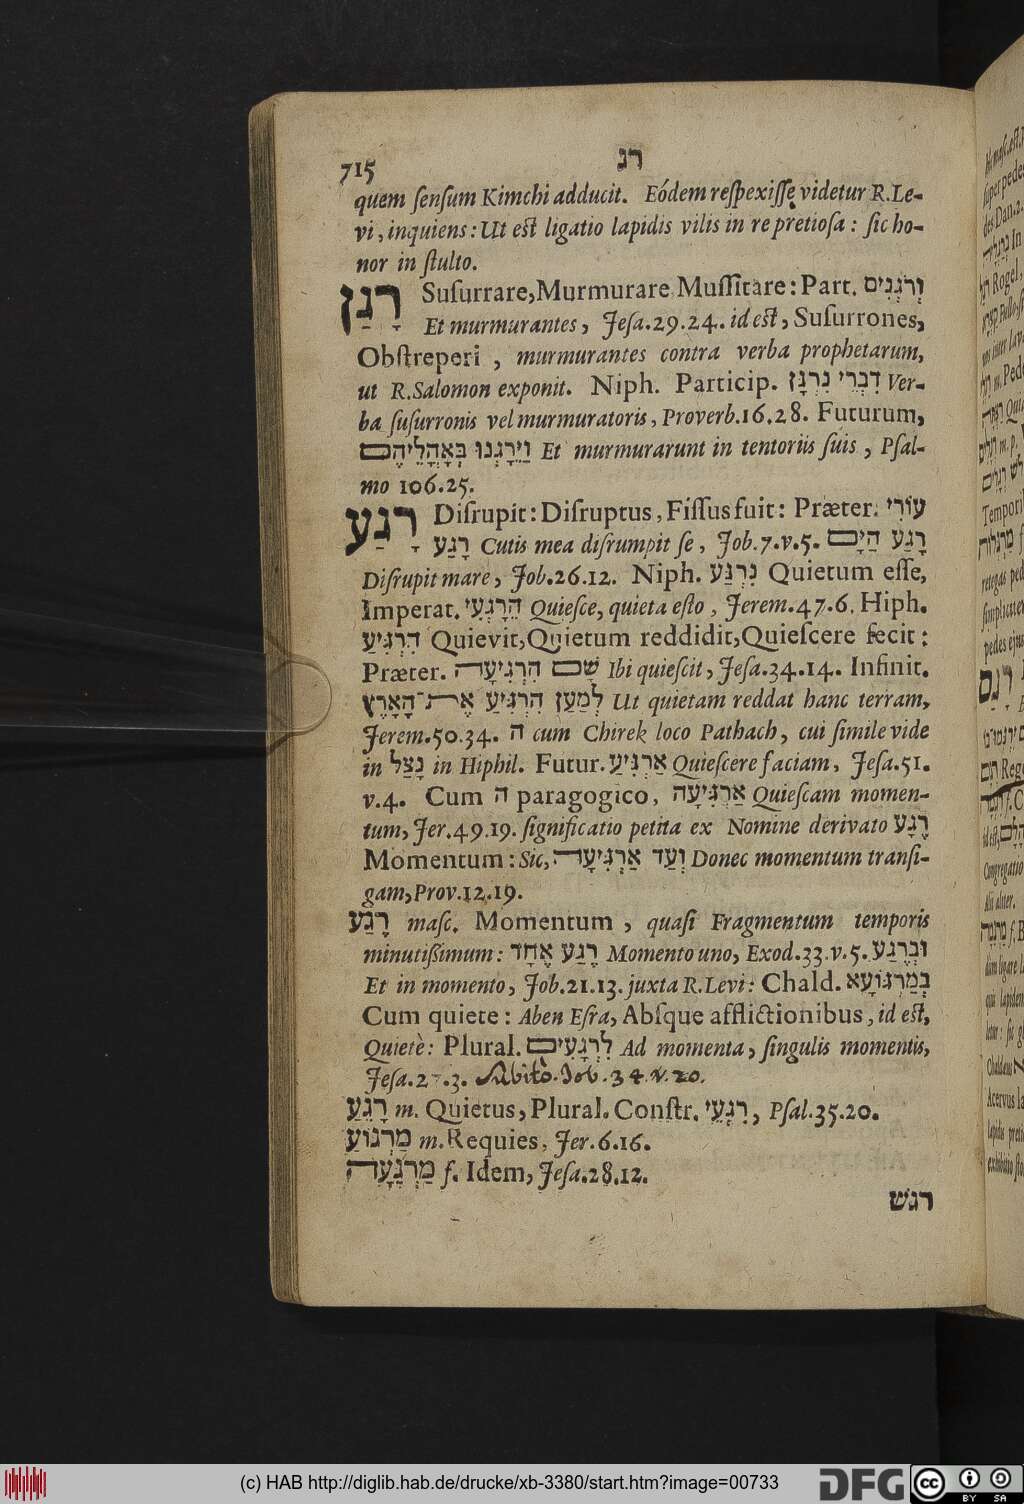 715 רג
quem ſenſum Kimchi adducit. Eódem reſpexiſſe videtur R.Le-
vi, inquiens: Ut est ligatio lapidis vilis in re pretioſa: ſic ho-
nor in ſtulto.
רָגַן Suſurrare, Murmurare Muſſitare: Part. וְרֹגְנִים
Et murmurantes, Jeſa.29.24. id est, Suſurrones,
Obſtreperi, murmurantes contra verba prophetarum,
ut R.Salomon exponit. Niph. Particip. דִבְרֵי נִרְגָן Ver-
ba ſuſurronis vel murmuratoris, Proverb.16.28. Futurum,
וַיֵרָגְנוּ בְּאָהֳלֵיהֶם Et murmurarunt in tentoriis ſuis, Pſal-
mo 106.25.
רָגַע Diſrupit: Diſruptus, Fiſſus fuit: Præter. עוֹרִי
רָגַע Cutis mea diſrumpit ſe, Job.7.v.5. רָגַע הַיָם
Diſrupit mare, Job.26.12. Niph. נִרְגַּע Quietum eſſe,
Imperat. הֵרָגְעִי Quieſce, quieta eſto, Jerem.47.6. Hiph.
הִרְגִּיעַ Quievit, Quietum reddidit, Quieſcere fecit:
Præter. שָׁם הִרְגִּיעָה Ibi quieſcit, Jeſa.34.14. Infinit.
לְמַעַן הִרְגִּיעַ אֶת־הָאָרֶץ Ut quietam reddat hanc terram,
Jerem.50.34. ה cum Chirek loco Pathach, cui ſimile vide
in נָצַל in Hiphil. Futur. אַרְגִּיעַ Quieſcere faciam, Jeſa.51.
v.4. Cum ה paragogico, אַרְגִּיעָה Quieſcam momen-
tum, Jer.49.19. ſignificatio petita ex Nomine derivato רֶגַע
Momentum: Sic, וְעַד אַרְגִּיעָה Donec momentum tranſi-
gam, Prov.12.19.
רֶגַע maſc. Momentum, quaſi Fragmentum temporis
minutiſſimum: רֶגַע אֶחָד Momento uno, Exod.33.v.5. וּבְרֶגַע
Et in momento, Job.21.13. juxta R.Levi: Chald. בְּמַרְגּוֹעָא
Cum quiete: Aben Eſra, Abſque afflictionibus, id est,
Quietè: Plural. לִרְגָעִים Ad momenta, ſingulis momentis,
Jeſa.27.3. Subito. Job. 34. v. 20.
רָגֵעַ m. Quietus, Plural. Conſtr. רִגְעֵי, Pſal.35.20.
מַרְגּוֹעַ m. Requies, Jer.6.16.
מַרְגֵּעָה f. Idem, Jeſa.28.12.
רגש
(c) HAB http://diglib.hab.de/drucke/xb-3380/start.htm?image=00733
DFG cc BY SA